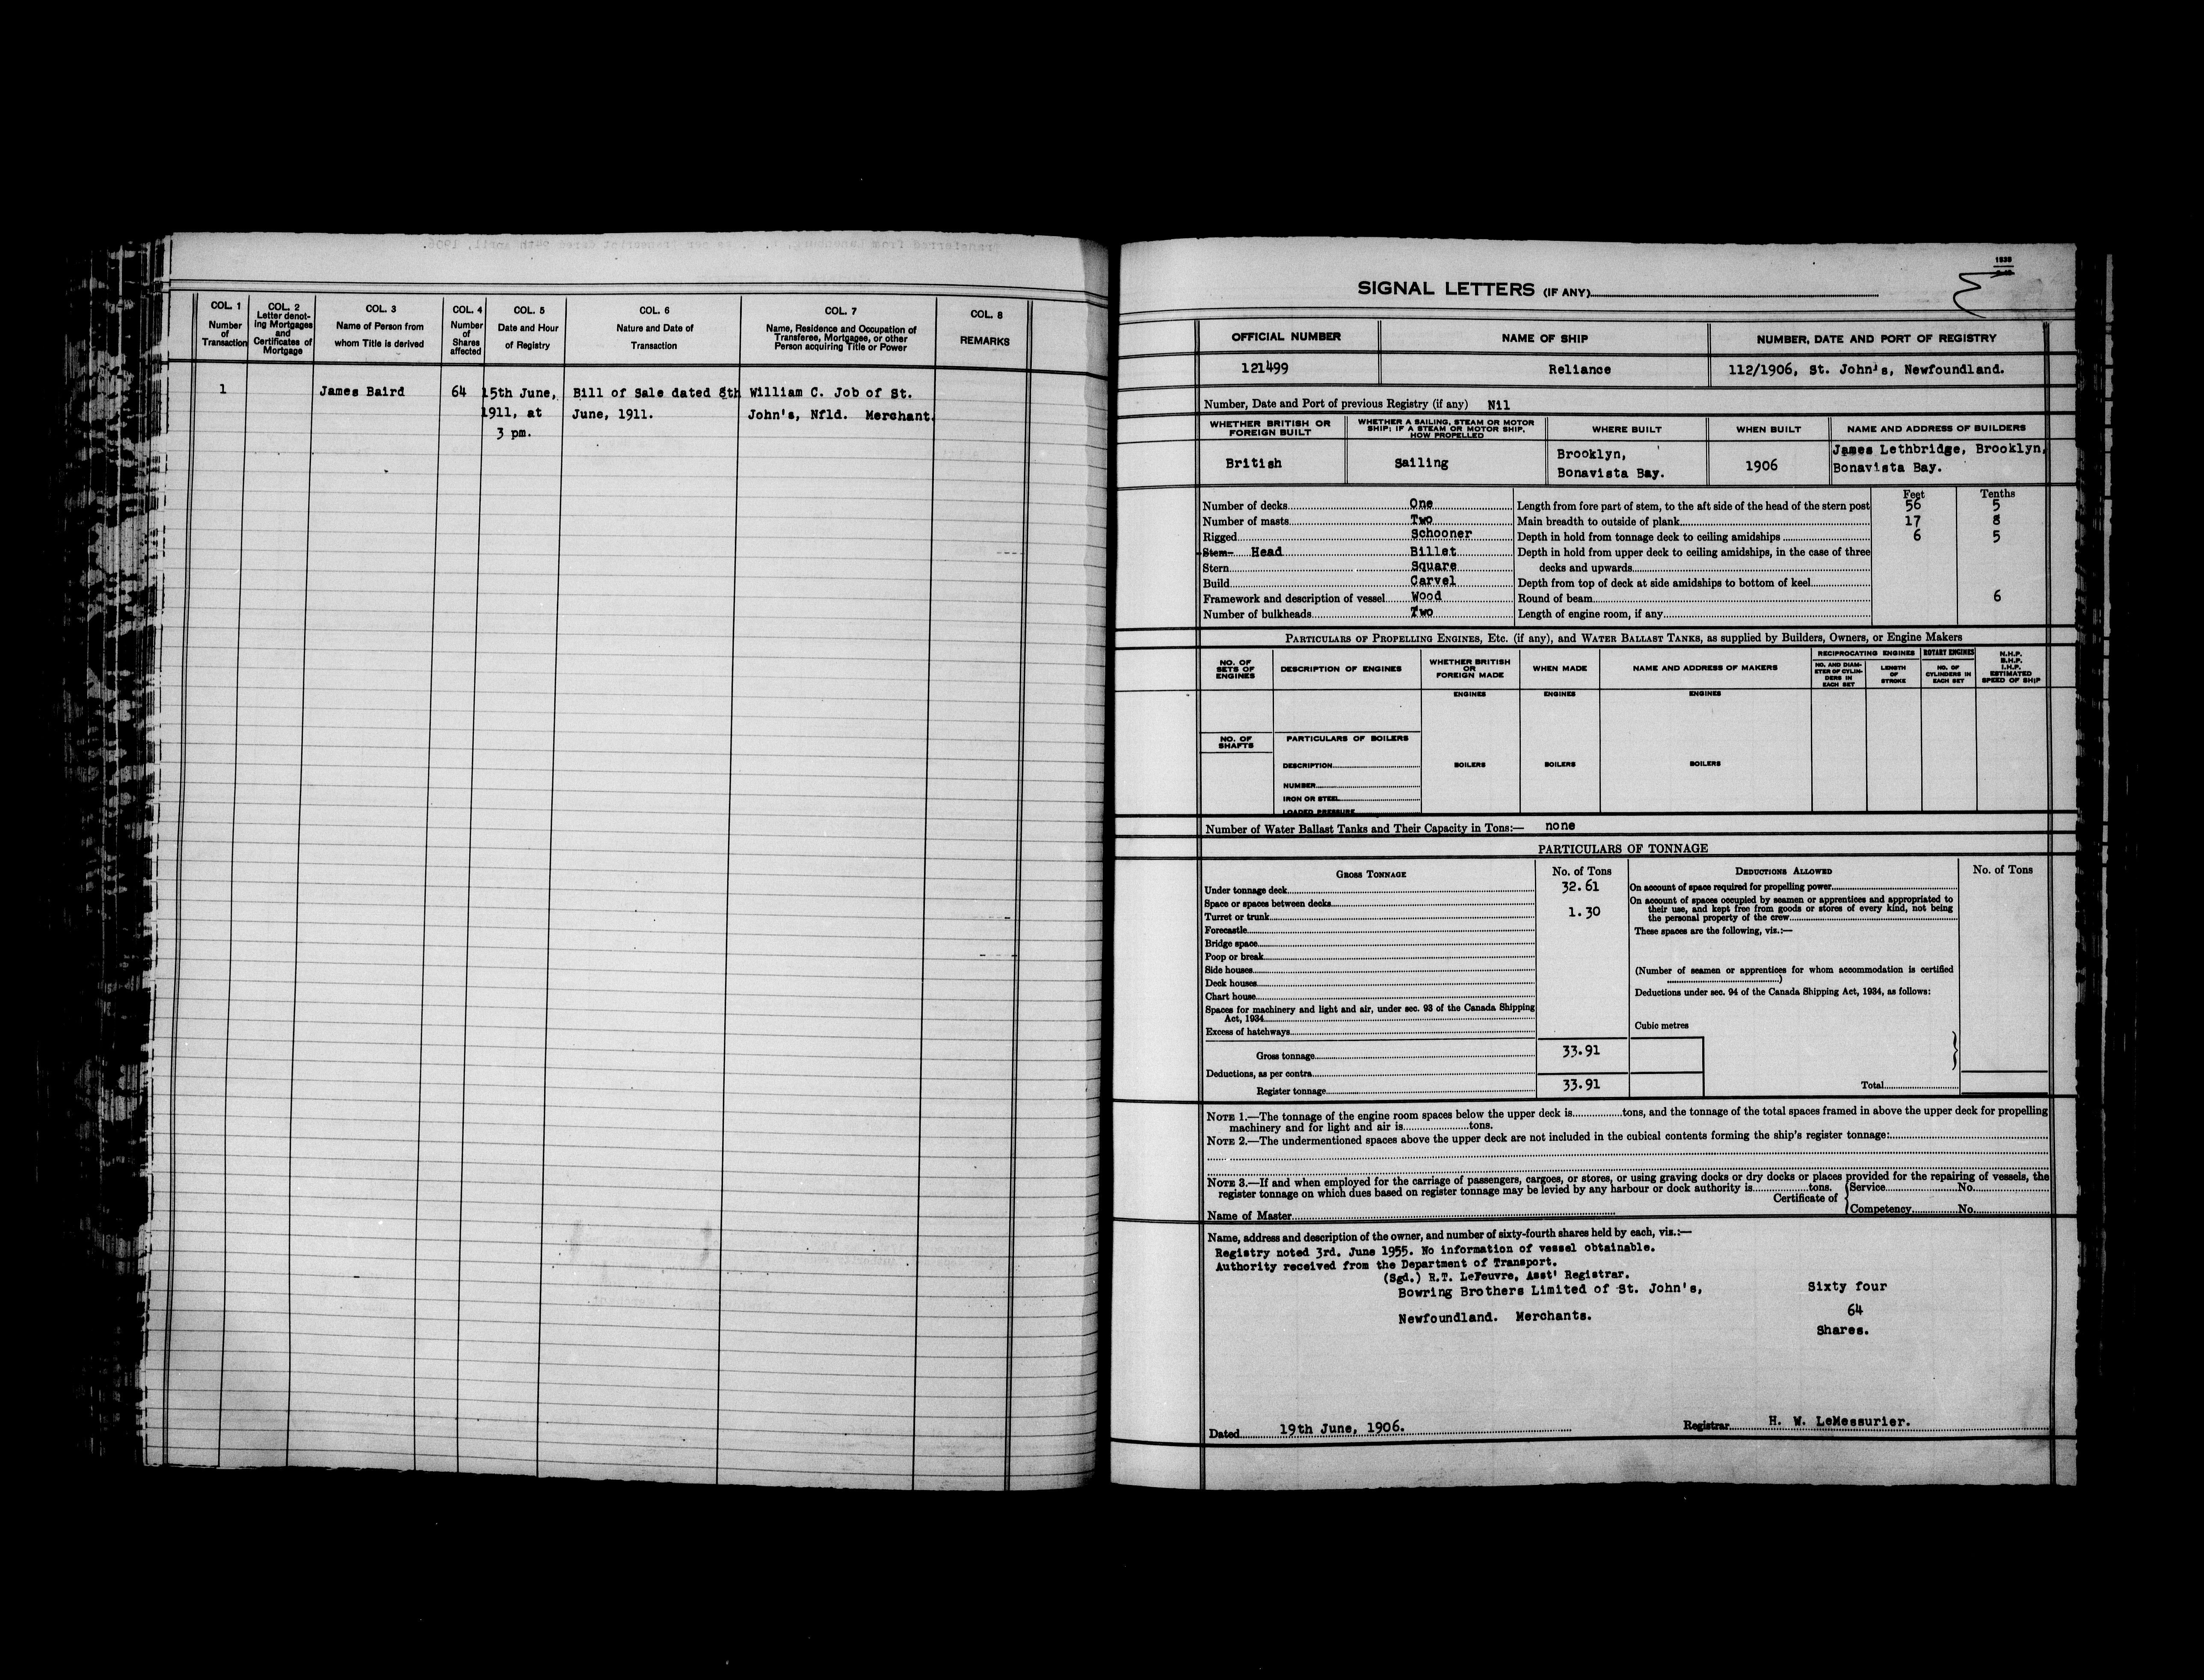 COL. 1
Number
of
Transaction
COL. 2
Letter denot-
ing Mortgages
and
Certificates of
Mortgage
COL. 3
Name of Person from
whom Title is derived
COL. 4
Number
of
Shares
affected
COL. 5
Date and Hour
of Registry
COL. 6
Nature and Date of
Transaction
COL. 7
Name, Residence and Occupation of
Transferee, Mortgagee, or other
Person acquiring Title or Power
COL. 8
REMARKS
1 James Baird 64 15th June, Bill of Sale dated 8th William C. Job of St.
1911, at June, 1911. John's, Nfld. Merchant.
3 pm.
SIGNAL LETTERS (IF ANY)
OFFICIAL NUMBER NAME OF SHIP NUMBER, DATE AND PORT OF REGISTRY
121499 Reliance 112/1906, St. John's, Newfoundland.
Number, Date and Port of previous Registry (if any) Nil
WHETHER BRITISH OR
FOREIGN BUILT
WHETHER A SAILING, STEAM OR MOTOR
SHIP; IF A STEAM OR MOTOR SHIP,
HOW PROPELLED
WHERE BUILT
WHEN BUILT
NAME AND ADDRESS OF BUILDERS
British
Sailing
Brooklyn,
Bonavista Bay.
1906
James Lethbridge, Brooklyn,
Bonavista Bay.
Feet Tenths
Number of decks One
Number of masts Two
Rigged Schooner
Stem Head Billet
Stern Square
Build Carvel
Framework and description of vessel Wood
Number of bulkheads Two
Length from fore part of stem, to the aft side of the head of the stern post 56 5
Main breadth to outside of plank 17 8
Depth in hold from tonnage deck to ceiling amidships 6 5
Depth in hold from upper deck to ceiling amidships, in the case of three
decks and upwards
Depth from top of deck at side amidships to bottom of keel
Round of beam 6
Length of engine room, if any
PARTICULARS OF PROPELLING ENGINES, ETC. (if any), and WATER BALLAST TANKS, as supplied by Builders, Owners, or Engine Makers
NO. OF
SETS OF
ENGINES
DESCRIPTION OF ENGINES
WHETHER BRITISH
OR
FOREIGN MADE
WHEN MADE
NAME AND ADDRESS OF MAKERS
RECIPROCATING ENGINES
NO. AND DIAM-
ETER OF CYLIN-
DERS IN
EACH SET
LENGTH
OF
STROKE
ROTARY ENGINES
NO. OF
CYLINDERS IN
EACH SET
N.H.P.
B.H.P.
I.H.P.
ESTIMATED
SPEED OF SHIP
ENGINES ENGINES ENGINES
NO. OF
SHAFTS
PARTICULARS OF BOILERS
DESCRIPTION
BOILERS BOILERS BOILERS
NUMBER
IRON OR STEEL
LOADED PRESSURE
Number of Water Ballast Tanks and Their Capacity in Tons:— none
PARTICULARS OF TONNAGE
GROSS TONNAGE No. of Tons
Under tonnage deck 32.61
Space or spaces between decks
Turret or trunk 1.30
Forecastle
Bridge space
Poop or break
Side houses
Deck houses
Chart house
Spaces for machinery and light and air, under sec. 93 of the Canada Shipping
Act, 1934
Excess of hatchways
Gross tonnage 33.91
Deductions, as per contra
Register tonnage 33.91
DEDUCTIONS ALLOWED No. of Tons
On account of space required for propelling power
On account of spaces occupied by seamen or apprentices and appropriated to
their use, and kept free from goods or stores of every kind, not being
the personal property of the crew
These spaces are the following, viz.:—
(Number of seamen or apprentices for whom accommodation is certified
)
Deductions under sec. 94 of the Canada Shipping Act, 1934, as follows:
Cubic metres
Total
NOTE 1.—The tonnage of the engine room spaces below the upper deck is tons, and the tonnage of the total spaces framed in above the upper deck for propelling
machinery and for light and air is tons.
NOTE 2.—The undermentioned spaces above the upper deck are not included in the cubical contents forming the ship's register tonnage:
NOTE 3.—If and when employed for the carriage of passengers, cargoes, or stores, or using graving docks or dry docks or places provided for the repairing of vessels, the
register tonnage on which dues based on register tonnage may be levied by any harbour or dock authority is tons.
Certificate of Service No.
Competency No.
Name of Master
Name, address and description of the owner, and number of sixty-fourth shares held by each, viz.:—
Registry noted 3rd. June 1955. No information of vessel obtainable.
Authority received from the Department of Transport.
(Sgd.) R.T. LeFeuvre, Asst' Registrar.
Bowring Brothers Limited of St. John's, Sixty four
Newfoundland. Merchants. 64
Shares.
Dated 19th June, 1906. Registrar H. W. LeMessurier.